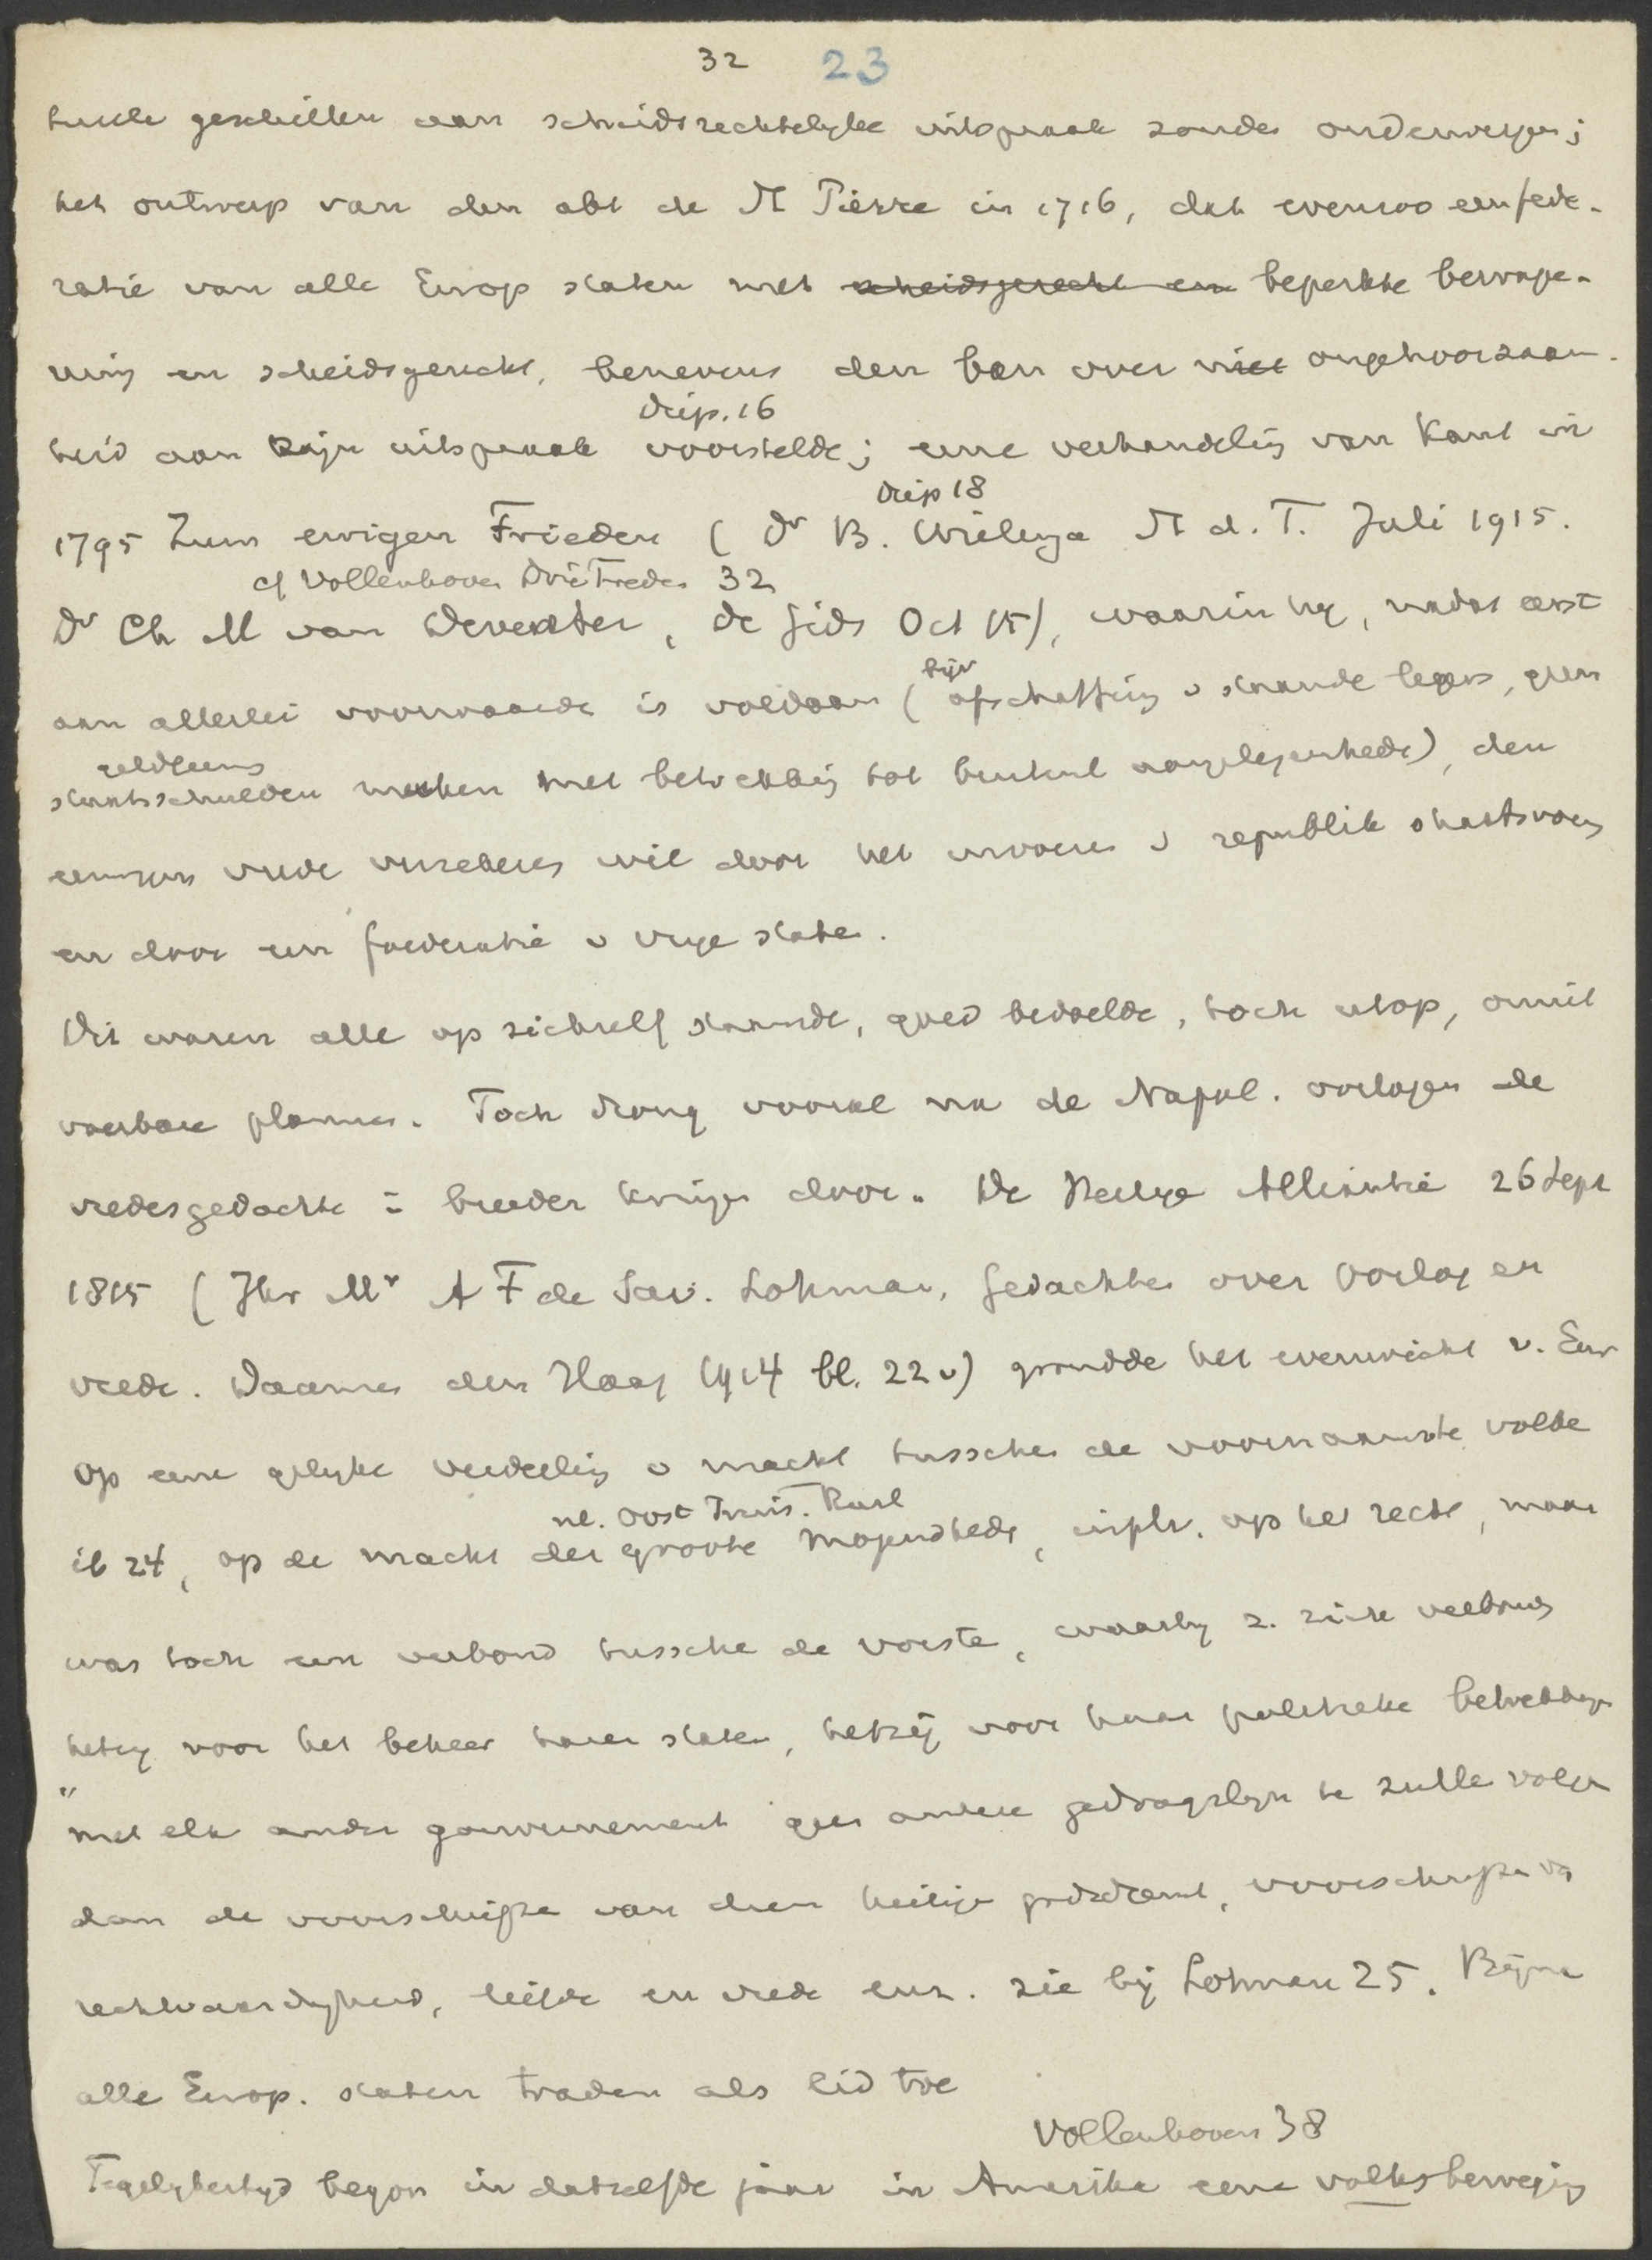 32 23
hunne geschillen aan scheidsrechterlyke uitspraak zouden onderwerpen;
het ontwerp van den abt de St Pierre in 1716, dat evenzoo een fede-
ratie van alle Europ staten met scheidsgerecht en beperkte bewape-
ning en scheidsgerecht, benevens den ban over niet ongehoorzaam-
Drip. 16
heid aan zijn uitspraak voorstelde; eene verhandeling van Kant in
Drip 18
1795 Zum ewigen Frieden ( Dr B. Wielenga St d. T. Juli 1915.
cf Vollenhoven Drie Treden 32
Dr Ch M van Deventer, de Gids Oct 15), waarin hy, nadat eerst
bijv
aan allerlei voorwaarden is voldaan ( afschaffing v staande legers, geen
staatsschulden maken met betrekking tot buitenl aangelegenheden), den
eeuwigen vrede verzekeren wil door het invoeren v republik staatsvorm
en door een foederatie v vrye staten.
Dit waren alle op zichzelf staande, goed bedoelde, toch utop, onuit
voerbare plannen. Toch drong vooral na de Napol. oorlogen de
vredesgedachte in breeder kringen door. De Heilige Alliantie 26 Sept
1815 ( Jhr Mr A F de Sav. Lohman, Gedachten over Oorlog en
vrede. Daamen den Haag 1914 bl. 22 v) grondde het evenwicht v. Eur
op eene gelyke verdeeling v macht tusschen de voornaamste volke
nl. Oost Pruis. Rusl
ib 24, op de macht der groote mogendhede, in plv. op het recht, maar
was toch een verbond tussche de vorste, waarby z. zich verbonden
hetzy voor het beheer harer staten, hetzij voor haar politieke betrekkingen
"met elk ander gouvernement geen andere gedragslyn te zulle volgen
dan de voorschrifte van dien heilige godsdienst, voorschrifte van
rechtvaardigheid, liefde en vrede enz. zie bij Lohman 25. Bijna
alle Europ. staten traden als lid toe
Vollenhoven 38
Tegelykertyd begon in datzelfde jaar in Amerika eene volksbeweging